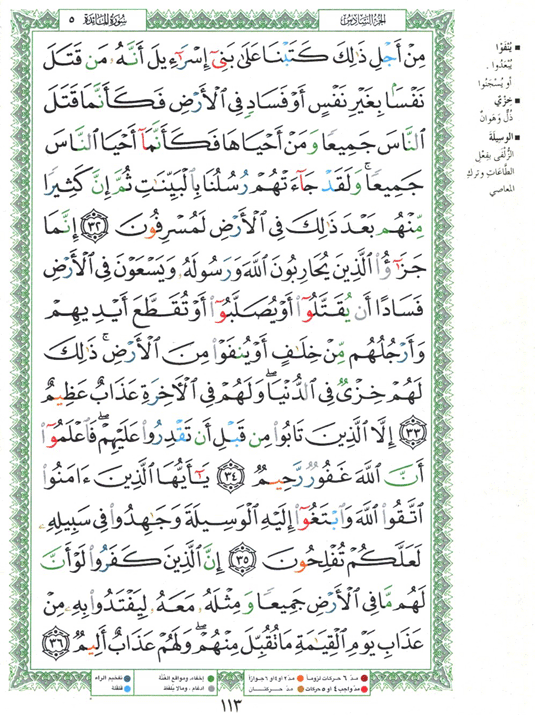 سورة المائدة ٥
الجزء السادس
مِنْ أَجْلِ ذَٰلِكَ كَتَبْنَا عَلَىٰ بَنِىٓ إِسْرَٰٓءِيلَ أَنَّهُۥ مَن قَتَلَ
نَفْسًۢا بِغَيْرِ نَفْسٍ أَوْ فَسَادٍ فِى ٱلْأَرْضِ فَكَأَنَّمَا قَتَلَ
ٱلنَّاسَ جَمِيعًا وَمَنْ أَحْيَاهَا فَكَأَنَّمَآ أَحْيَا ٱلنَّاسَ
جَمِيعًا ۚ وَلَقَدْ جَآءَتْهُمْ رُسُلُنَا بِٱلْبَيِّنَٰتِ ثُمَّ إِنَّ كَثِيرًا
مِّنْهُم بَعْدَ ذَٰلِكَ فِى ٱلْأَرْضِ لَمُسْرِفُونَ ٣٢ إِنَّمَا
جَزَٰٓؤُا۟ ٱلَّذِينَ يُحَارِبُونَ ٱللَّهَ وَرَسُولَهُۥ وَيَسْعَوْنَ فِى ٱلْأَرْضِ
فَسَادًا أَن يُقَتَّلُوٓا۟ أَوْ يُصَلَّبُوٓا۟ أَوْ تُقَطَّعَ أَيْدِيهِمْ
وَأَرْجُلُهُم مِّنْ خِلَٰفٍ أَوْ يُنفَوْا۟ مِنَ ٱلْأَرْضِ ۚ ذَٰلِكَ
لَهُمْ خِزْىٌ فِى ٱلدُّنْيَا ۖ وَلَهُمْ فِى ٱلْءَاخِرَةِ عَذَابٌ عَظِيمٌ
٣٣ إِلَّا ٱلَّذِينَ تَابُوا۟ مِن قَبْلِ أَن تَقْدِرُوا۟ عَلَيْهِمْ ۖ فَٱعْلَمُوٓا۟
أَنَّ ٱللَّهَ غَفُورٌ رَّحِيمٌ ٣٤ يَٰٓأَيُّهَا ٱلَّذِينَ ءَامَنُوا۟
ٱتَّقُوا۟ ٱللَّهَ وَٱبْتَغُوٓا۟ إِلَيْهِ ٱلْوَسِيلَةَ وَجَٰهِدُوا۟ فِى سَبِيلِهِۦ
لَعَلَّكُمْ تُفْلِحُونَ ٣٥ إِنَّ ٱلَّذِينَ كَفَرُوا۟ لَوْ أَنَّ
لَهُم مَّا فِى ٱلْأَرْضِ جَمِيعًا وَمِثْلَهُۥ مَعَهُۥ لِيَفْتَدُوا۟ بِهِۦ مِنْ
عَذَابِ يَوْمِ ٱلْقِيَٰمَةِ مَا تُقُبِّلَ مِنْهُمْ ۖ وَلَهُمْ عَذَابٌ أَلِيمٌ ٣٦
■ يُنْفَوْا
يُبْعَدُوا.
أو يُسْجَنُوا
■ خِزْيٌ
ذُلٌّ وَهَوانٌ
■ الوسِيلَة
الزُّلْفَى بِفِعْلِ
الطَّاعَاتِ وتركِ
المعاصي
مدّ ٦ حركات لزوماً مدّ ٢ أو ٤ أو ٦ جوازاً إخفاء، ومواقع الغُنَّة تفخيم الراء
مدّ واجب ٤ أو ٥ حركات مدّ حركتان ادغام، ومالا يُلفظ قلقلة
١١٣